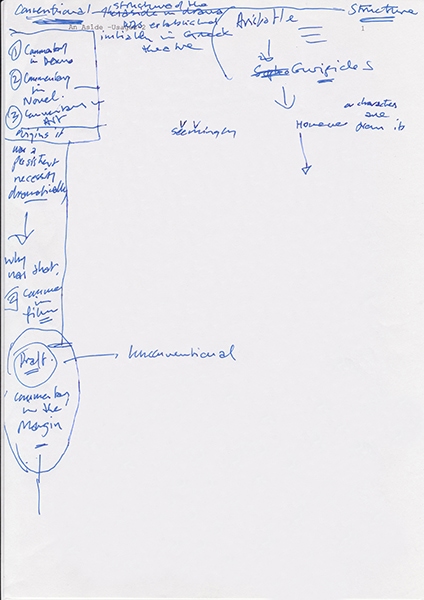 Conventional
structure of the
Aristotle
Structure
An Aside - Usa
was established
initially in Greek
theatre
1
① Commentary
in Drama
② Commentary
in
Novel.
③
Art
origins it
was a
persistent
necessity
dramatically
Euripides
However
characters
are
drawn
seemingly
why
was that.
in
film
Draft.
Unconventional
commentary
in the
Margin